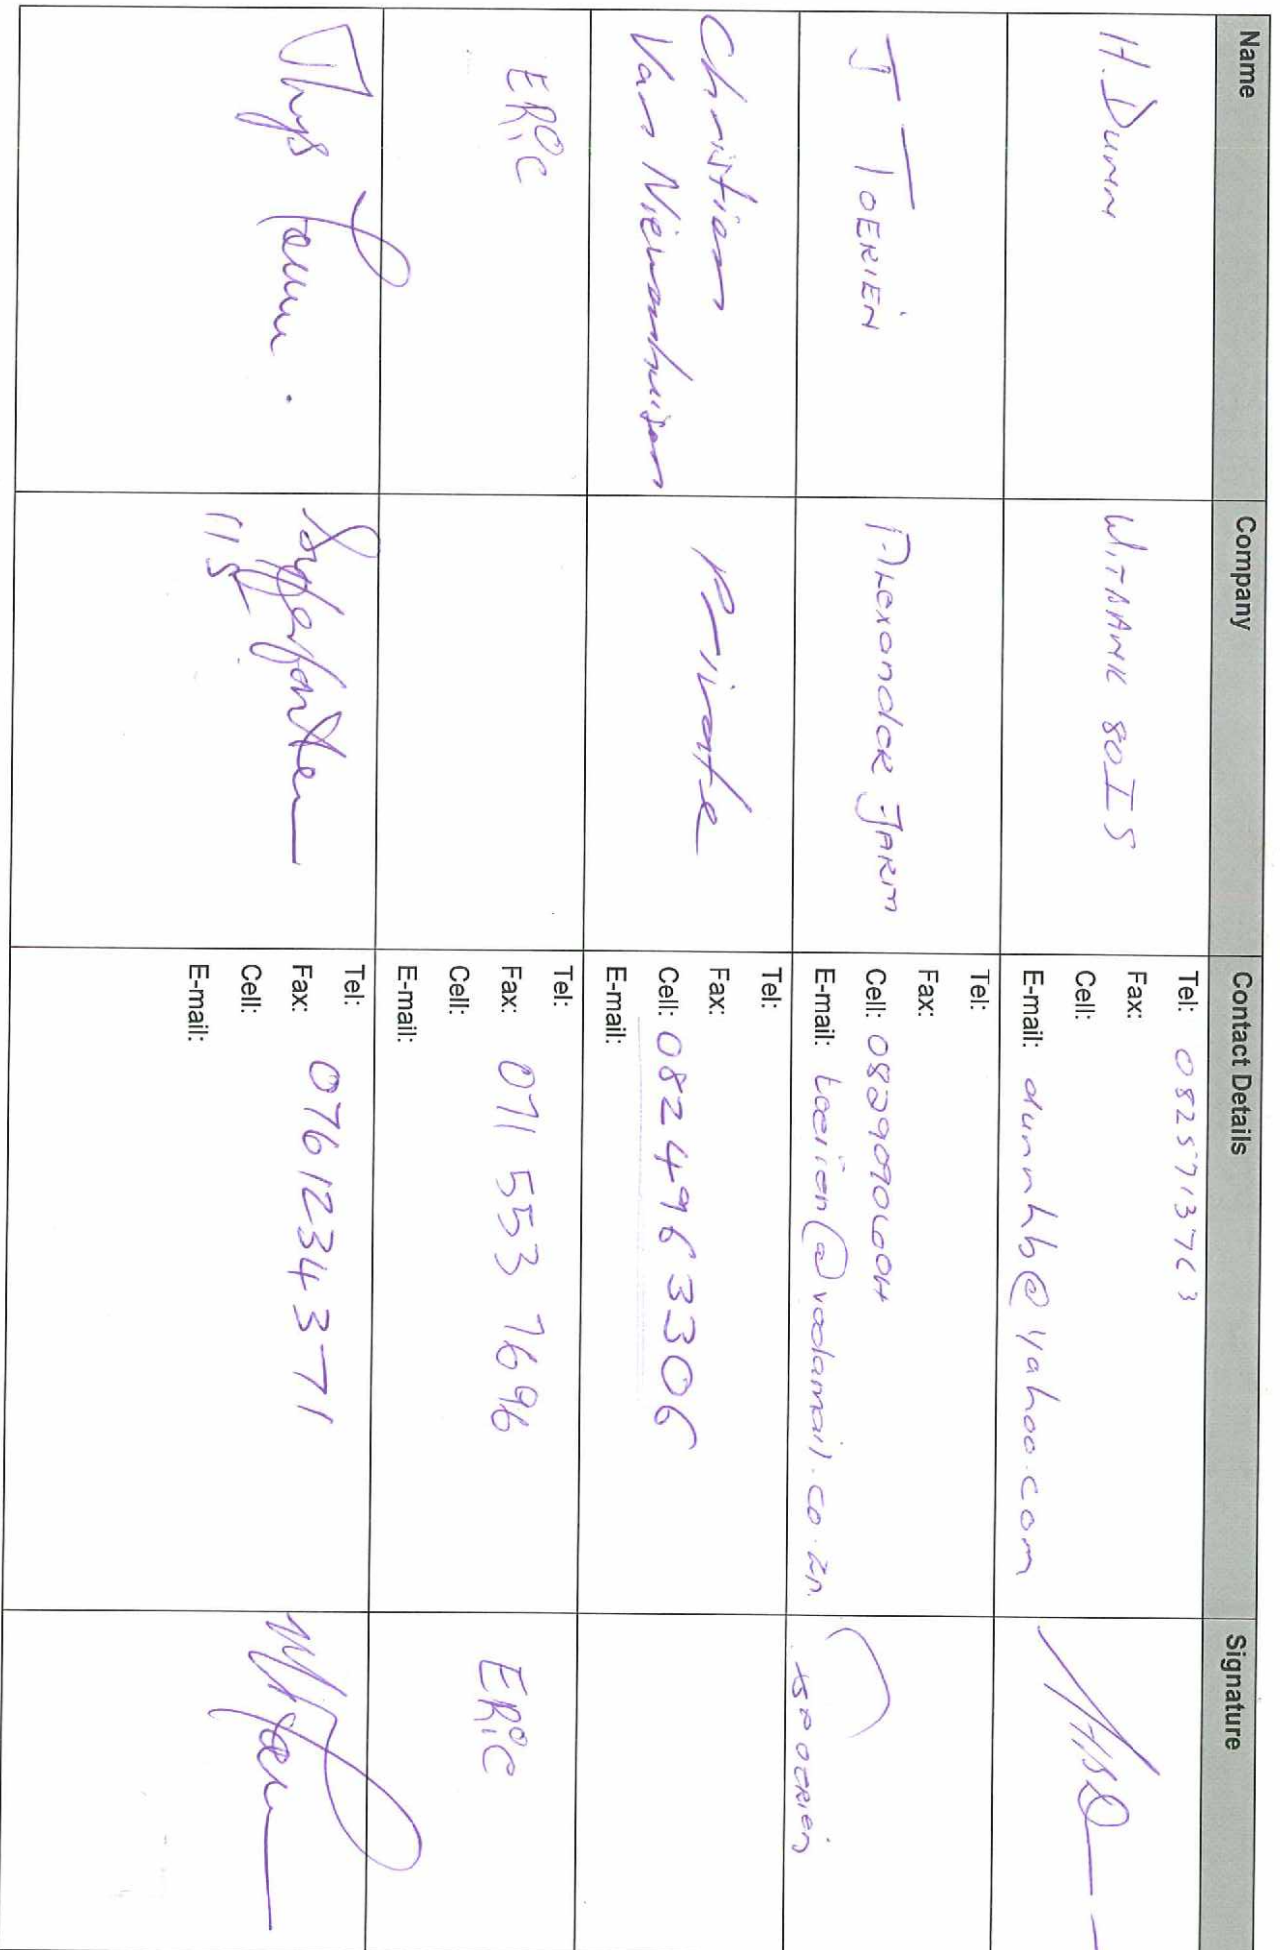 Name Company Contact Details Signature
H. Dunn
WITBANK 80IS
Tel: 0825713763
Fax:
Cell:
E-mail: dunnhb@yahoo.com
J TOERIEN
Alexander Farm
Tel:
Fax:
Cell:
E-mail: toerien@vodamail.co.za
Christiaan
Van Niewenhuisen
Private
Tel:
Fax:
Cell: 0824963306
E-mail:
ERiC
Tel:
Fax: 071 553 7696
Cell:
E-mail:
ERiC
Thys
Tel:
Fax: 0761234371
Cell:
E-mail:
115